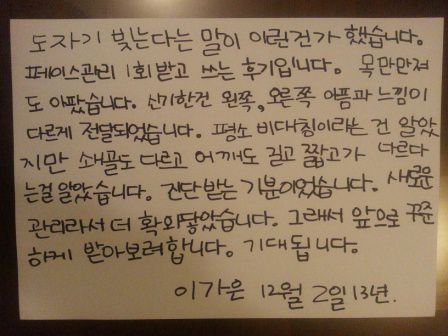 도자기 빚는다는 말이 이런건가 했습니다.
페이스관리 1회받고 쓰는 후기입니다. 목만만져
도 아팠습니다. 신기한건 왼쪽, 오른쪽 아픔과 느낌이
다르게 전달되었습니다. 평소 비대칭이라는 건 알았
지만 쇄골도 다르고 어깨도 길고 짧고가 다르다
는걸 알았습니다. 진단받는 기분이었습니다. 새로운
관리라서 더 확와닿았습니다. 그래서 앞으로 꾸준
하게 받아보려합니다. 기대됩니다.
이가은 12월 2일 13년.